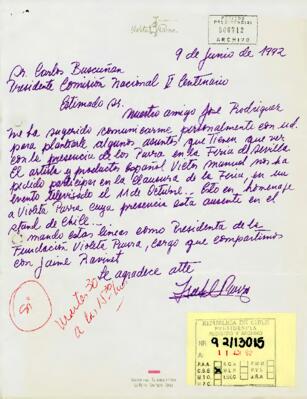 Violeta Parra
PERIODO
PRESIDENCIAL
006712
ARCHIVO
9 de junio de 1992
Sr. Carlos Bascuñan
Presidente Comisión Nacional V Centenario
Estimado Sr.
Nuestro amigo José Rodriguez
me ha sugerido comunicarme personalmente con ud.
para plantearle algunos asuntos que tienen que ver
con la presencia de los Parra en la Feria de Sevilla.
El artista y productor español Victor Manuel nos ha
pedido participar en la Clausura de la Feria, en un
evento televisado el 12 de Octubre. Esto en homenaje
a Violeta Parra cuya presencia esta ausente en el
stand de Chile.
mando estas lineas como Presidenta de la
Fundación Violeta Parra, cargo que compartimos
con Jaime Navinet
Le agradece atte
Isabel Parra
Sí
Martes 30
a las 15
REPUBLICA DE CHILE
PRESIDENCIA
REGISTRO Y ARCHIVO
NR 92/13015
A: